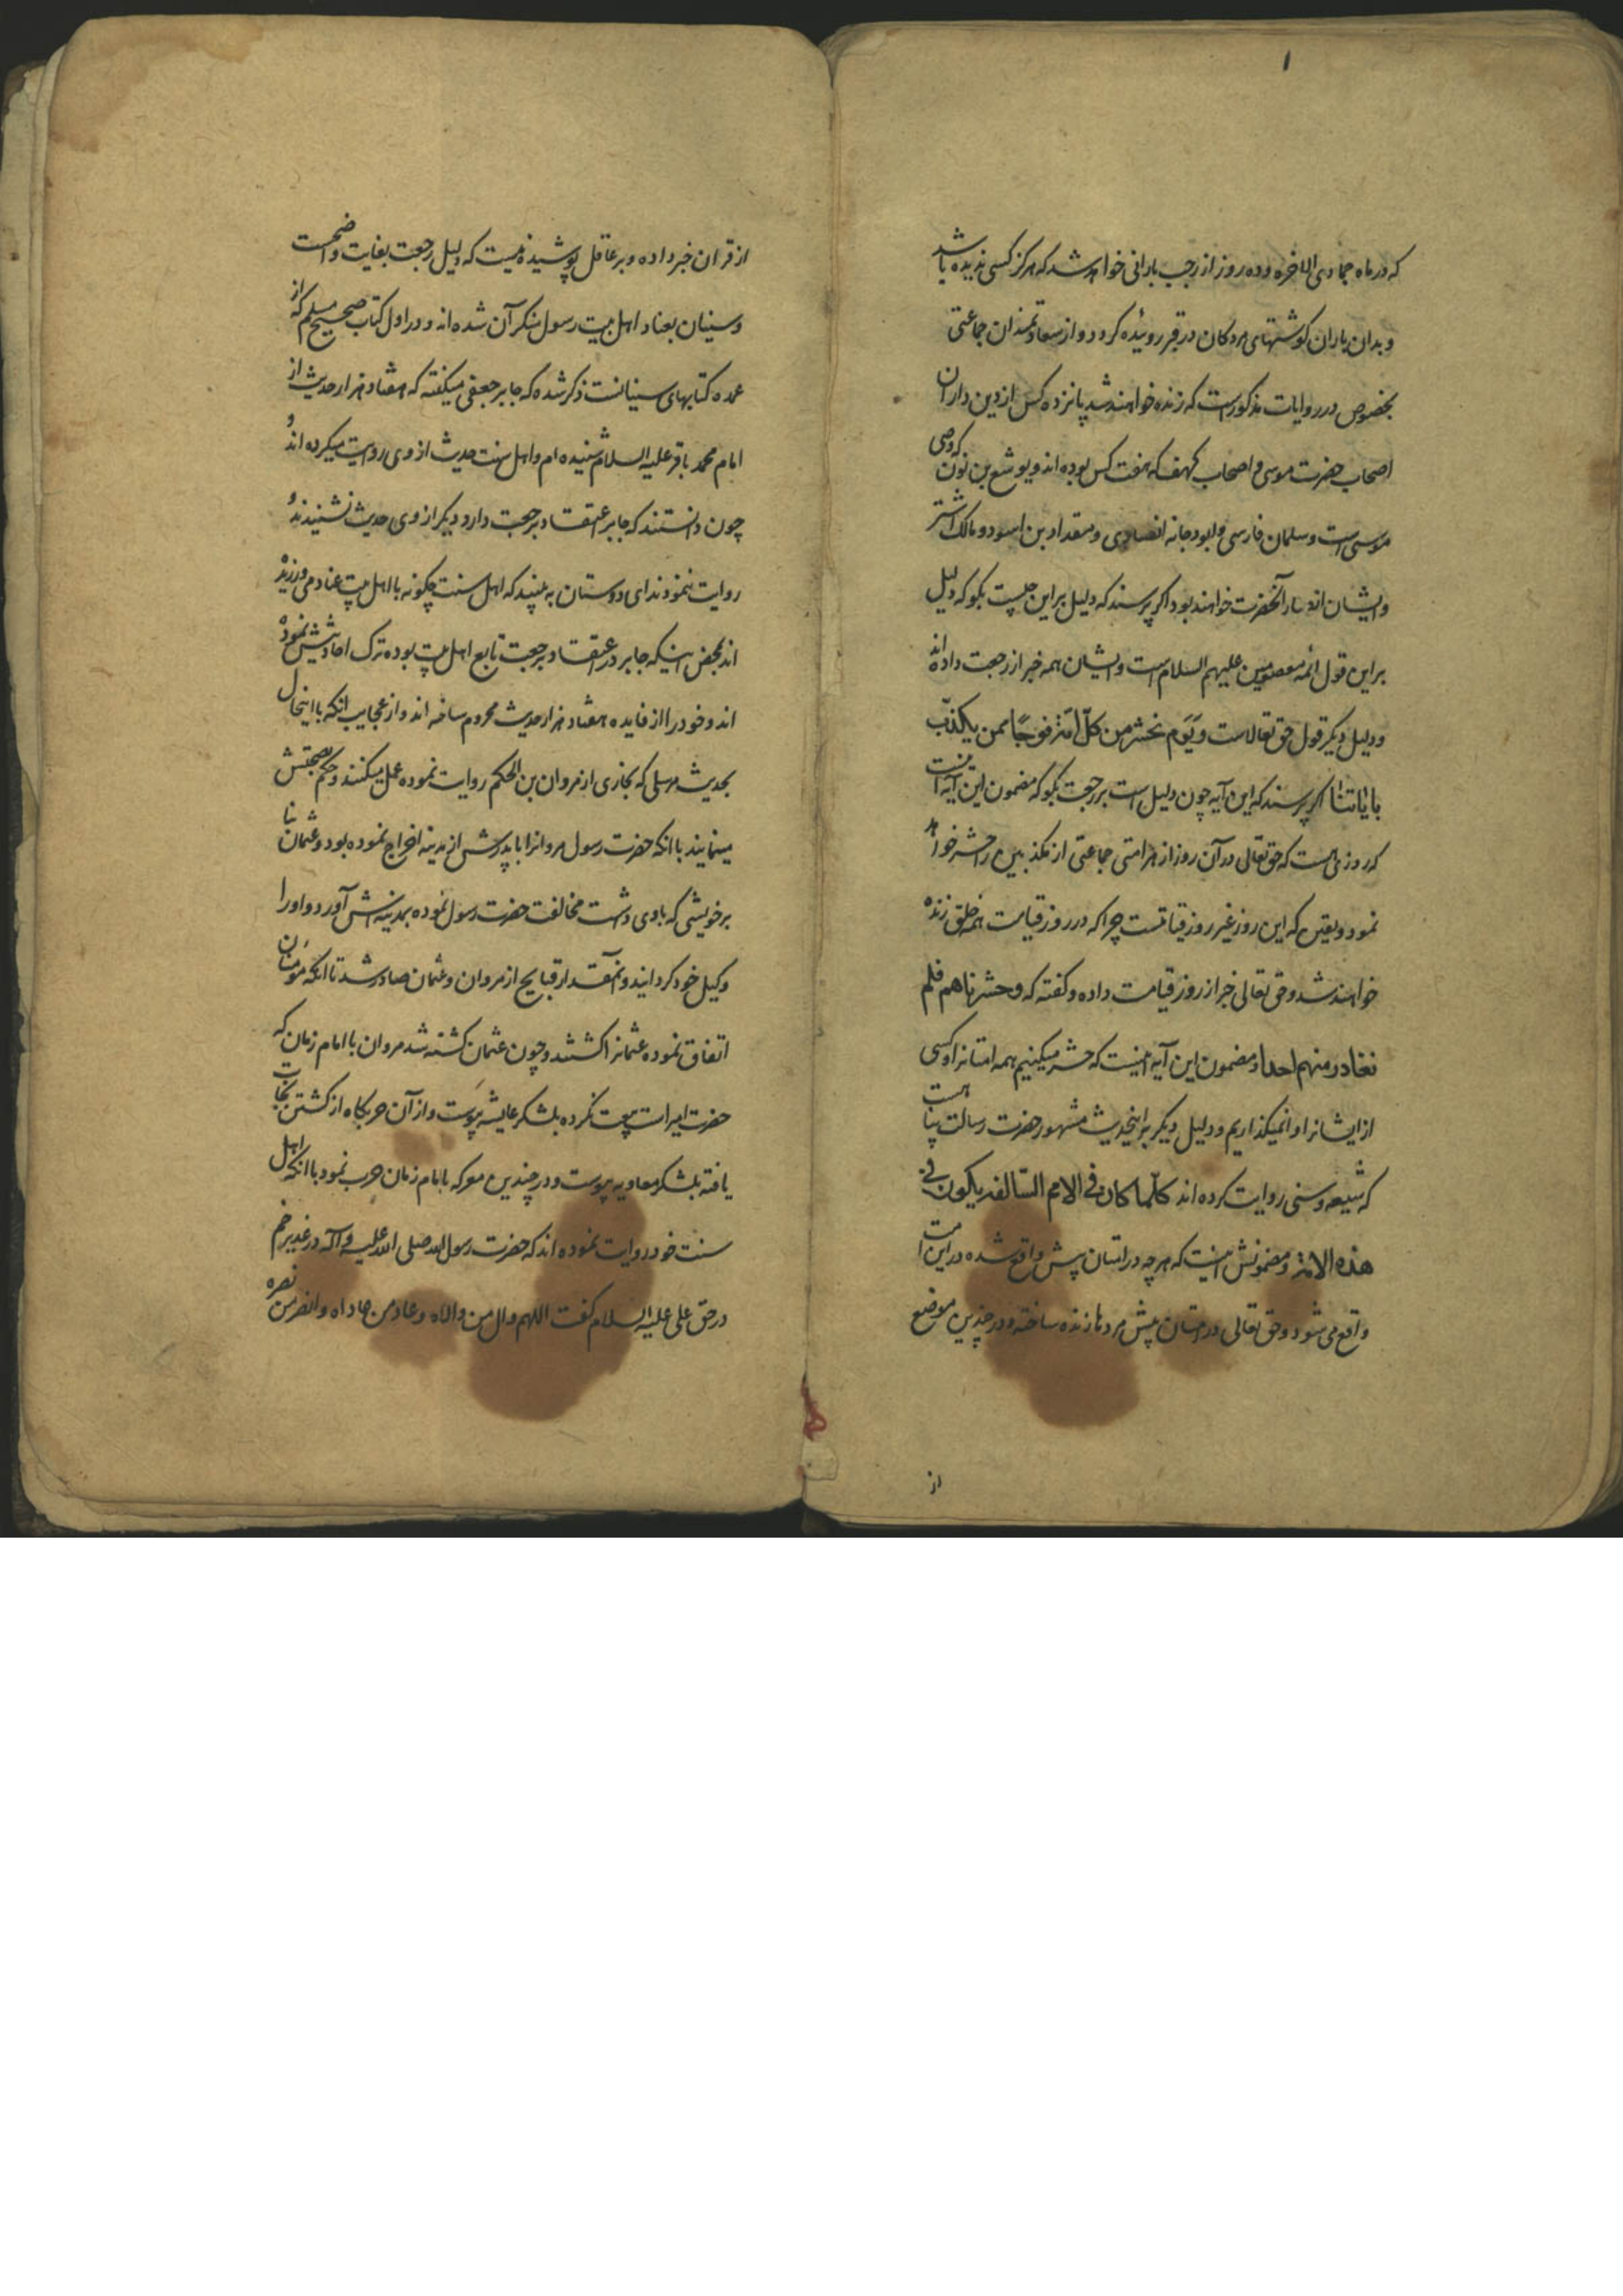 ۱
که در ماه جمادی الاخره و ده روز از رجب بارانی خواهد شد که هرکز کسی ندیده باشد
و بدان باران کوشتهای مردکان در قبر روئیده کردد و از سعادتمندان جماعتی
بخصوص در روایات مذکور است که زنده خواهند شد پانزده کس از دین داران
اصحاب حضرت موسی و اصحاب کهف که هفت کس بوده اند و یوشع بن نون که وصی
موسی است و سلمان فارسی و ابودجانه انصاری و مقداد بن اسود و مالک اشتر
و ایشان انصار آنحضرت خواهند بود اکر پرسند که دلیل بر این چیست بکو که دلیل
بر این قول ائمه معصومین علیهم السلام است و ایشان همه خبر از رجعت داده اند
و دلیل دیکر قول حق تعالاست وَیَوم نحشر من کلّ امّة فوجًا ممن یکذّب
بایاتنا اکر پرسند که این آیه چون دلیل است بر رجعت بکو که مضمون این آیه اینست
که روزی هست که حق تعالی در آن روز از هر امتی جماعتی از مکذبین را حشر خواهد
نمود و یقین که این روز غیر روز قیامتست چرا که در روز قیامت همه خلق زنده
خواهند شد و حق تعالی خبر از روز قیامت داده و کفته که وحشرناهم فلم
نغادر منهم احدا و مضمون این آیه اینست که حشر میکنیم همه امتانرا و کسی
از ایشانرا وانمیکذاریم و دلیل دیکر بر اینحدیث مشهور حضرت رسالت پناهست
که شیعه و سنی روایت کرده اند کلّما کان فی الامم السّالفه یکون فی
هذه الامّة و مضمونش اینست که هر چه در امتان پیش واقع شده در این امت
واقع می شود و حق تعالی در امتان پیش مردها زنده ساخته و در چندین موضع
از
از قران خبر داده و بر عاقل پوشیده نیست که دلیل رجعت بغایت واضحست
و سنیان بعناد اهل بیت رسول منکر آن شده اند و در اول کتاب صحیح مسلم که از
عمده کتابهای سنیانست ذکر شده که جابر جعفی میکفته که هفتاد هزار حدیث از
امام محمد باقر علیه السلام شنیده ام و اهل سنت حدیث از وی روایت میکرده اند و
چون دانستند که جابر اعتقاد برجعت دارد دیکر از وی حدیث نشنیدند و
روایت ننمودند ای دوستان به بینید که اهل سنت چکونه با اهل بیت عناد می ورزیده
اند بمحض اینکه جابر در اعتقاد برجعت تابع اهل بیت بوده ترک احادیثش نموده
اند و خود را از فایده هفتاد هزار حدیث محروم ساخته اند و از عجایب آنکه با اینحال
بحدیث مرسلی که بخاری از مروان بن الحکم روایت نموده عمل میکنند و حکم بصحتش
مینمایند با آنکه حضرت رسول مروانرا با پدرش از مدینه اخراج نموده بود و عثمان بنا
بر خویشی که با وی داشت مخالفت حضرت رسول نموده بمدینه اش آورد و او را
وکیل خود کردانید و آنمقدار قبایح از مروان و عثمان صادر شد تا آنکه مؤمنان
اتفاق نموده عثمانرا کشتند و چون عثمان کشته شد مروان با امام زمان که
حضرت امیر است بیعت نکرده بلشکر عایشه پیوست و از آن حربکاه از کشتن نجات
یافته بلشکر معاویه پیوست و در چندین معرکه با امام زمان حرب نمود با آنکه اهل
سنت خود روایت نموده اند که حضرت رسول الله صلی الله علیه و آله در غدیر خم
در حق علی علیه السلام کفت اللهم وال من والاه و عاد من عاداه و انصر من نصره